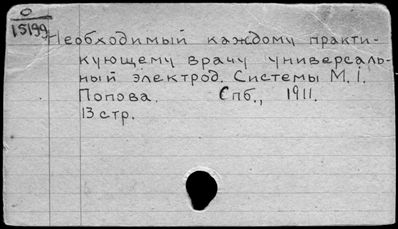 О
15199
Необходимый каждому практи-
кующему врачу универсаль-
ный электрод. Системы М. І.
Попова. Спб., 1911.
13 стр.